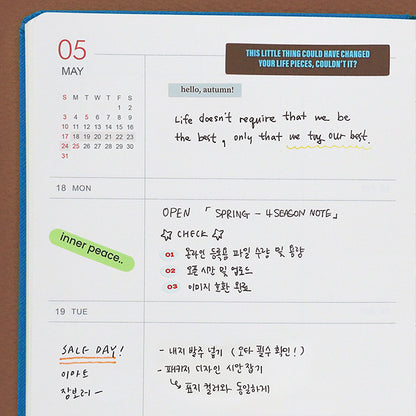 05
MAY
THIS LITTLE THING COULD HAVE CHANGED
YOUR LIFE PIECES, COULDN'T IT?
hello, autumn!
S M T W T F S
1 2
3 4 5 6 7 8 9
10 11 12 13 14 15 16
17 18 19 20 21 22 23
24 25 26 27 28 29 30
31
Life doesn't require that we be
the best, only that we try our best.
18 MON
OPEN 「SPRING - 4 SEASON NOTE」
CHECK
01 온라인 등록용 파일 수량 및 용량
02 오픈 시간 및 업로드
03 이미지 호환 완료
inner peace..
19 TUE
SALE DAY!
이마트
장보러~
- 내지 발주 넣기 (오타 필수 확인!)
- 패키지 디자인 시안 잡기
↳ 표지 컬러와 동일하게